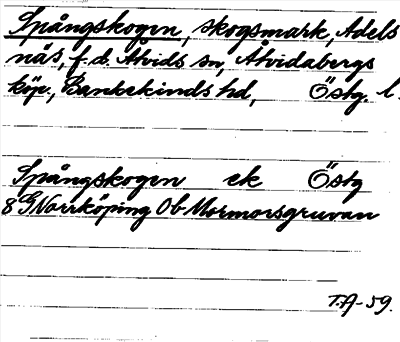 Spångskogen, skogsmark, Adels
näs, f.d. Åtvids sn, Åtvidabergs
köp., Bankekinds hd, Östg. l.
Spångskogen ek Östg
8G Norrköping Ob Mormorsgruvan
T.A-59.